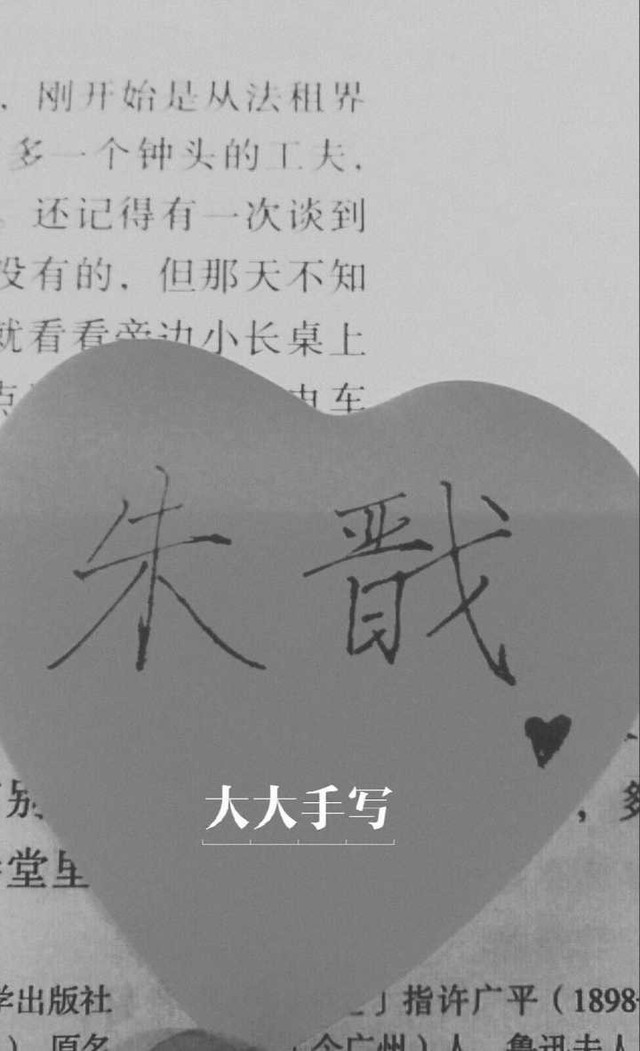 ，刚开始是从法租界
多一个钟头的工夫，
。还记得有一次谈到
没有的，但那天不知
就看看旁边小长桌上
电车
朱戬
大大手写
别
，多
堂里
学出版社
」指许广平（1898-
）原名
广州）人，鲁迅夫人